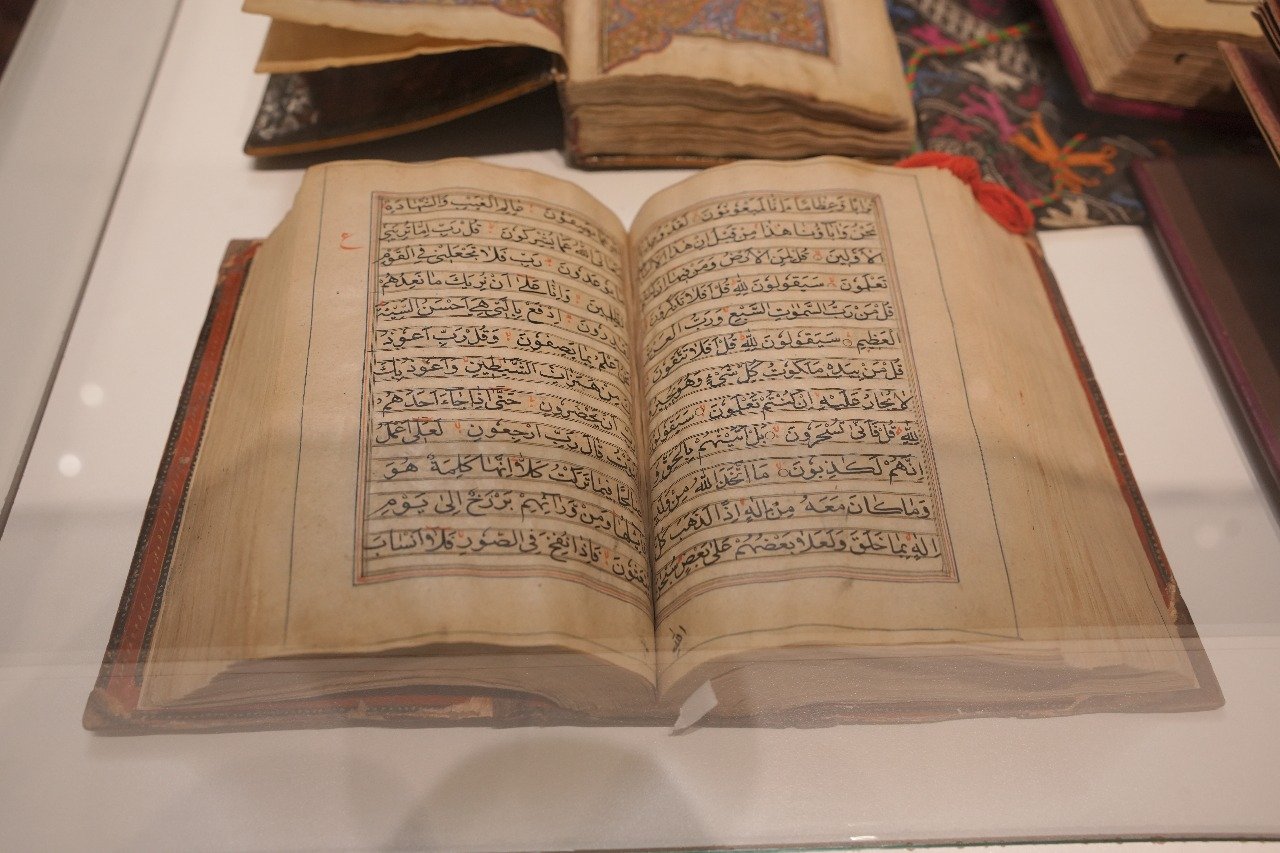 وَعِظَامًا ءَاِنَّا لَمَبْعُوثُونَ لَقَدْ
نَحْنُ وَاٰبَاؤُنَا هٰذَا مِنْ قَبْلُ اِنْ هٰذَا اِلَّا
الْاَوَّلِينَ قُلْ لِمَنِ الْاَرْضُ وَمَنْ فِيهَا اِنْ
تَعْلَمُونَ سَيَقُولُونَ لِلّٰهِ قُلْ اَفَلَا تَذَكَّرُونَ
قُلْ مَنْ رَبُّ السَّمٰوٰتِ السَّبْعِ وَرَبُّ الْعَرْشِ
لْعَظِيمِ سَيَقُولُونَ لِلّٰهِ قُلْ اَفَلَا تَتَّقُونَ
قُلْ مَنْ بِيَدِهِ مَلَكُوتُ كُلِّ شَيْءٍ وَهُوَ يُجِيرُ
لَا يُجَارُ عَلَيْهِ اِنْ كُنْتُمْ تَعْلَمُونَ سَيَقُولُونَ
لِلّٰهِ قُلْ فَاَنّٰى تُسْحَرُونَ بَلْ اَتَيْنٰهُمْ بِالْحَقِّ
اِنَّهُمْ لَكٰذِبُونَ مَا اتَّخَذَ اللّٰهُ مِنْ وَلَدٍ
وَمَا كَانَ مَعَهُ مِنْ اِلٰهٍ اِذًا لَذَهَبَ كُلُّ
اِلٰهٍ بِمَا خَلَقَ وَلَعَلَا بَعْضُهُمْ عَلٰى بَعْضٍ
يَصِفُونَ عَالِمِ الْغَيْبِ وَالشَّهَادَةِ
عَمَّا يُشْرِكُونَ قُلْ رَبِّ اِمَّا تُرِيَنِّي
يُوعَدُونَ رَبِّ فَلَا تَجْعَلْنِي فِي الْقَوْمِ
وَاِنَّا عَلٰى اَنْ نُرِيَكَ مَا نَعِدُهُمْ
اِدْفَعْ بِالَّتِي هِيَ اَحْسَنُ السَّيِّئَةَ
اَعْلَمُ بِمَا يَصِفُونَ وَقُلْ رَبِّ اَعُوذُ
مِنْ هَمَزَاتِ الشَّيٰطِينِ وَاَعُوذُ بِكَ
اَنْ يَحْضُرُونِ حَتّٰى اِذَا جَاءَ اَحَدَهُمُ
قَالَ رَبِّ ارْجِعُونِ لَعَلِّي اَعْمَلُ
صَالِحًا فِيمَا تَرَكْتُ كَلَّا اِنَّهَا كَلِمَةٌ هُوَ
وَمِنْ وَرَائِهِمْ بَرْزَخٌ اِلٰى يَوْمِ
يُبْعَثُونَ فَاِذَا نُفِخَ فِي الصُّورِ فَلَا اَنْسَابَ
ع